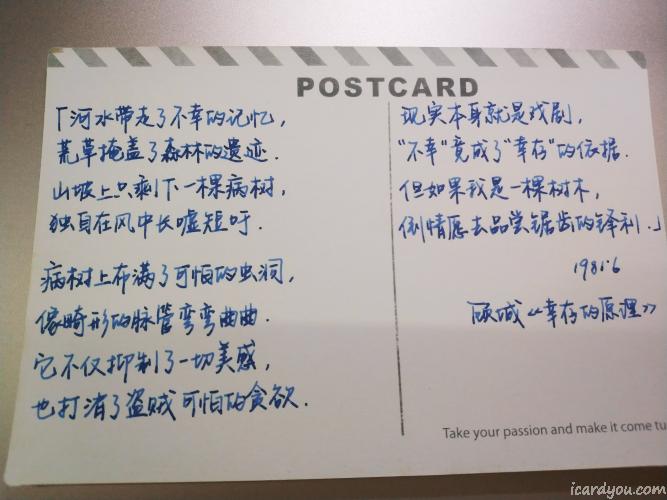 POSTCARD
「河水带走了不幸的记忆,
荒草掩盖了森林的遗迹.
山坡上只剩下一棵病树,
独自在风中长嘘短吁.
病树上布满了可怕的虫洞,
像畸形的脉管弯弯曲曲.
它不仅抑制了一切美感,
也打消了盗贼可怕的贪欲.
现实本身就是戏剧,
"不幸"竟成了"幸存"的依据.
但如果我是一棵树木,
倒情愿去品尝锯齿的锋利.」
1981.6
顾城《幸存的原理》
Take your passion and make it come tu
icardyou.com